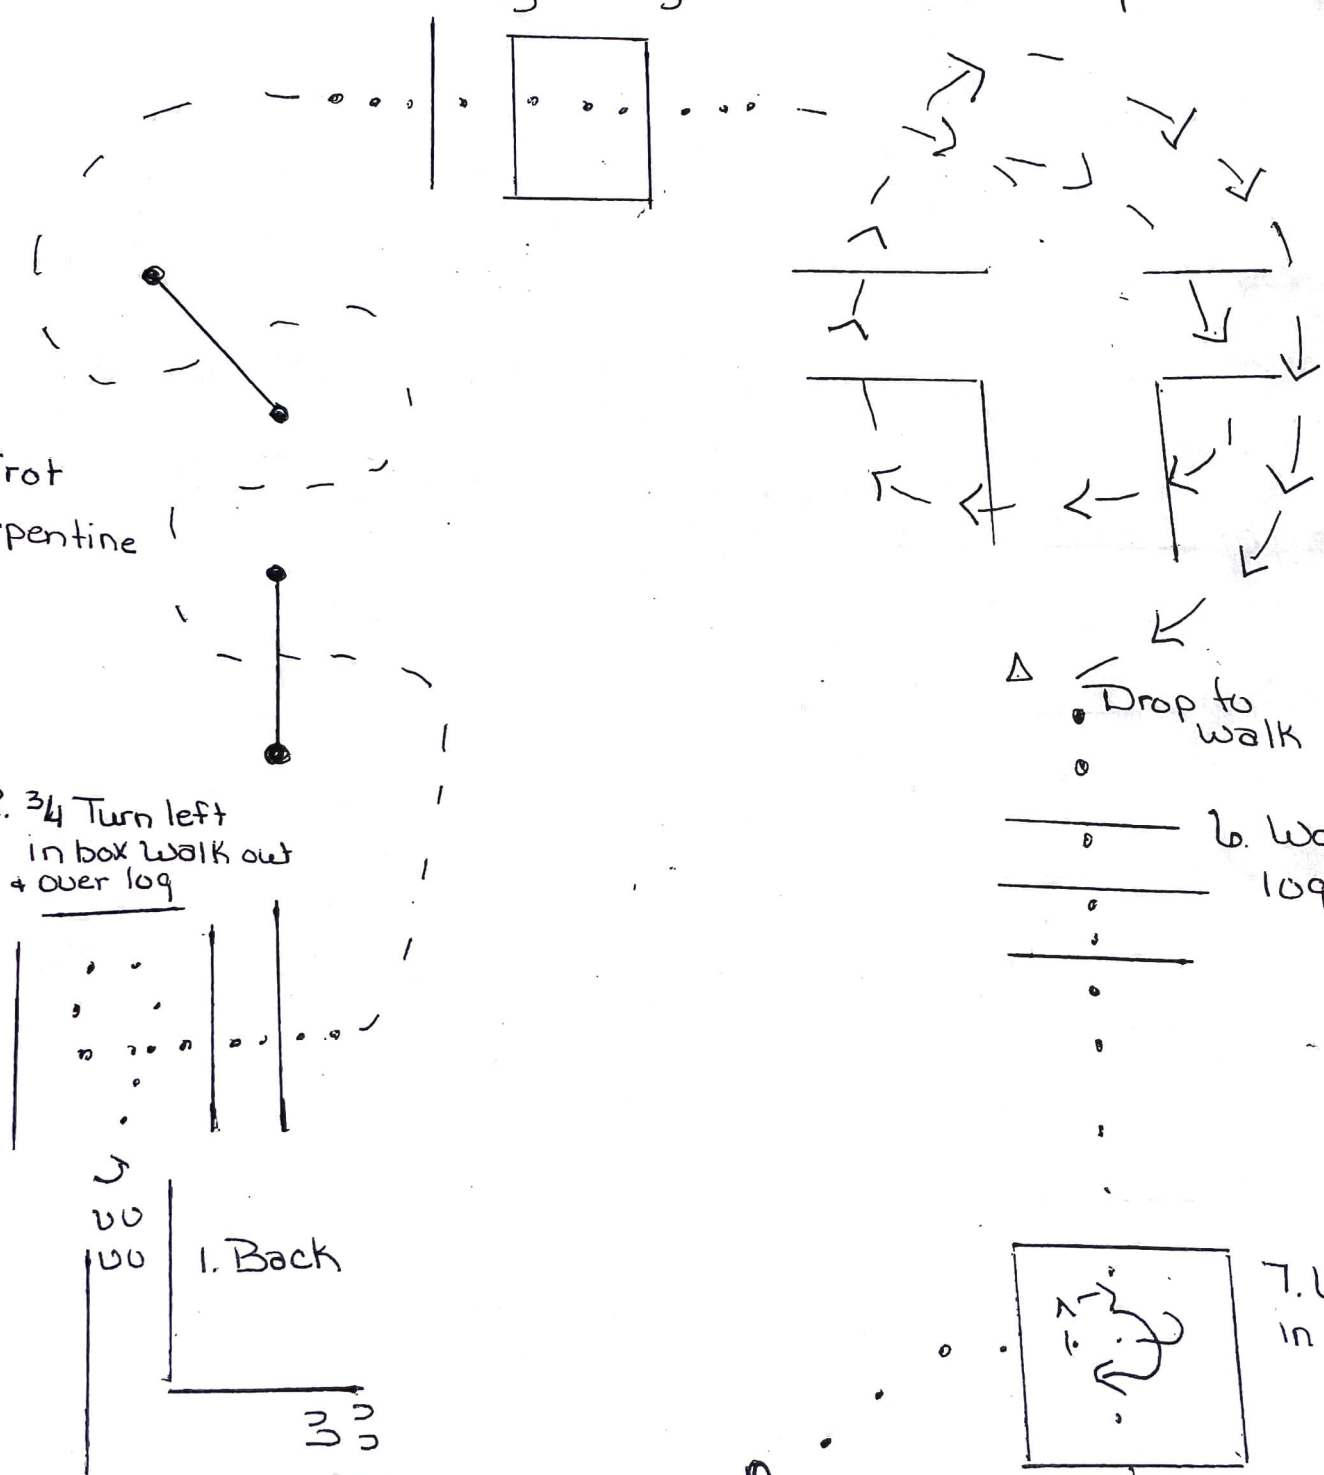 rot
pentine
3/4 Turn left
in box Walk out
& over log
1. Back
Drop to
walk
6. Wa
log
7. 
in